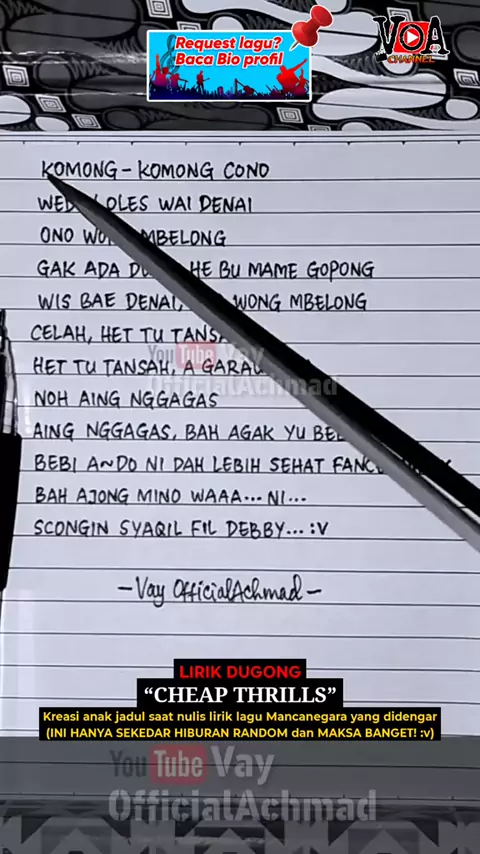 Request lagu?
Baca Bio profil
VOA
CHANNEL
KOMONG - KOMONG CONO
OLES WAI DENAI
ONO MBELONG
GAK ADA HE BU MAME GOPONG
WIS BAE DENAI, WONG MBELONG
CELAH, HET TU
HET TU TANSAH, A
NOH AING NGGAGAS
AING NGGAGAS, BAH AGAK YU
BEBI ANDO NI DAH LEBIH SEHAT
BAH AJONG MINO WAAA... NI...
SCONGIN SYAQIL FIL DEBBY... :V
-Vay OfficialAchmad-
YouTube Vay
OfficialAchmad
LIRIK DUGONG
“CHEAP THRILLS”
Kreasi anak jadul saat nulis lirik lagu Mancanegara yang didengar
(INI HANYA SEKEDAR HIBURAN RANDOM dan MAKSA BANGET! :v)
YouTube Vay
OfficialAchmad